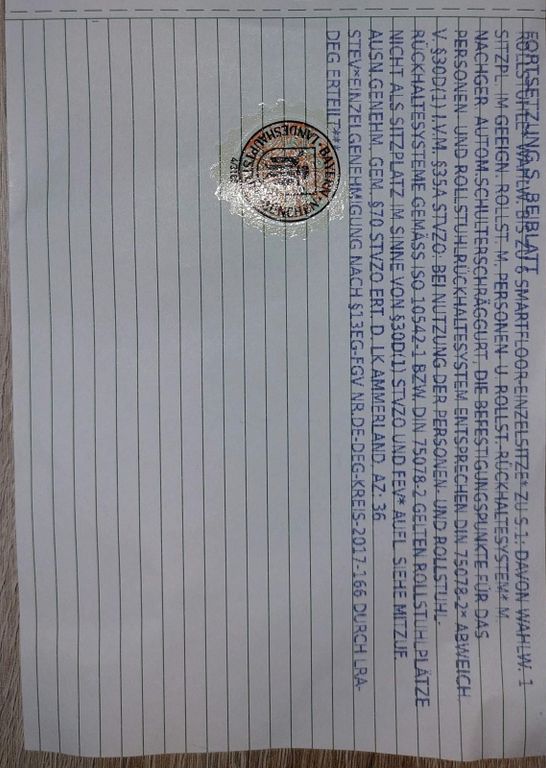 FORTSETZUNG S. BEIBLATT
ROLLSTÜHLE* WAHLW. BIS ZU 6 SMARTFLOOR-EINZELSITZE* ZU S.1: DAVON WAHLW. 1
SITZPL. M. GEEIGN. ROLLST. M. PERSONEN- U. ROLLST.-RÜCKHALTESYSTEM* M.
NACHGER. AUTOM.SCHULTERSCHRÄGGURT, DIE BEFESTIGUNGSPUNKTE FÜR DAS
PERSONEN- UND ROLLSTUHLRÜCKHALTESYSTEM ENTSPRECHEN DIN 75078-2* ABWEICH.
V. §30D(1) I.V.M. §35A STVZO: BEI NUTZUNG DER PERSONEN- UND ROLLSTUHL-
RÜCKHALTESYSTEME GEMÄSS ISO 10542-1 BZW. DIN 75078-2 GELTEN ROLLSTUHLPLÄTZE
NICHT ALS SITZPLATZ IM SINNE VON §30D(1) STVZO UND FEV* AUFL. SIEHE MITZUF.
AUSN.GENEHM. GEM. §70 STVZO ERT. D. LK AMMERLAND, AZ: 36
STEV*EINZELGENEHMIGUNG NACH §13EG-FGV NR.DE-DEG-KREIS-2017-166 DURCH LRA-
DEG ERTEILT***
BAYERN
LANDESHAUPTSTADT
MÜNCHEN